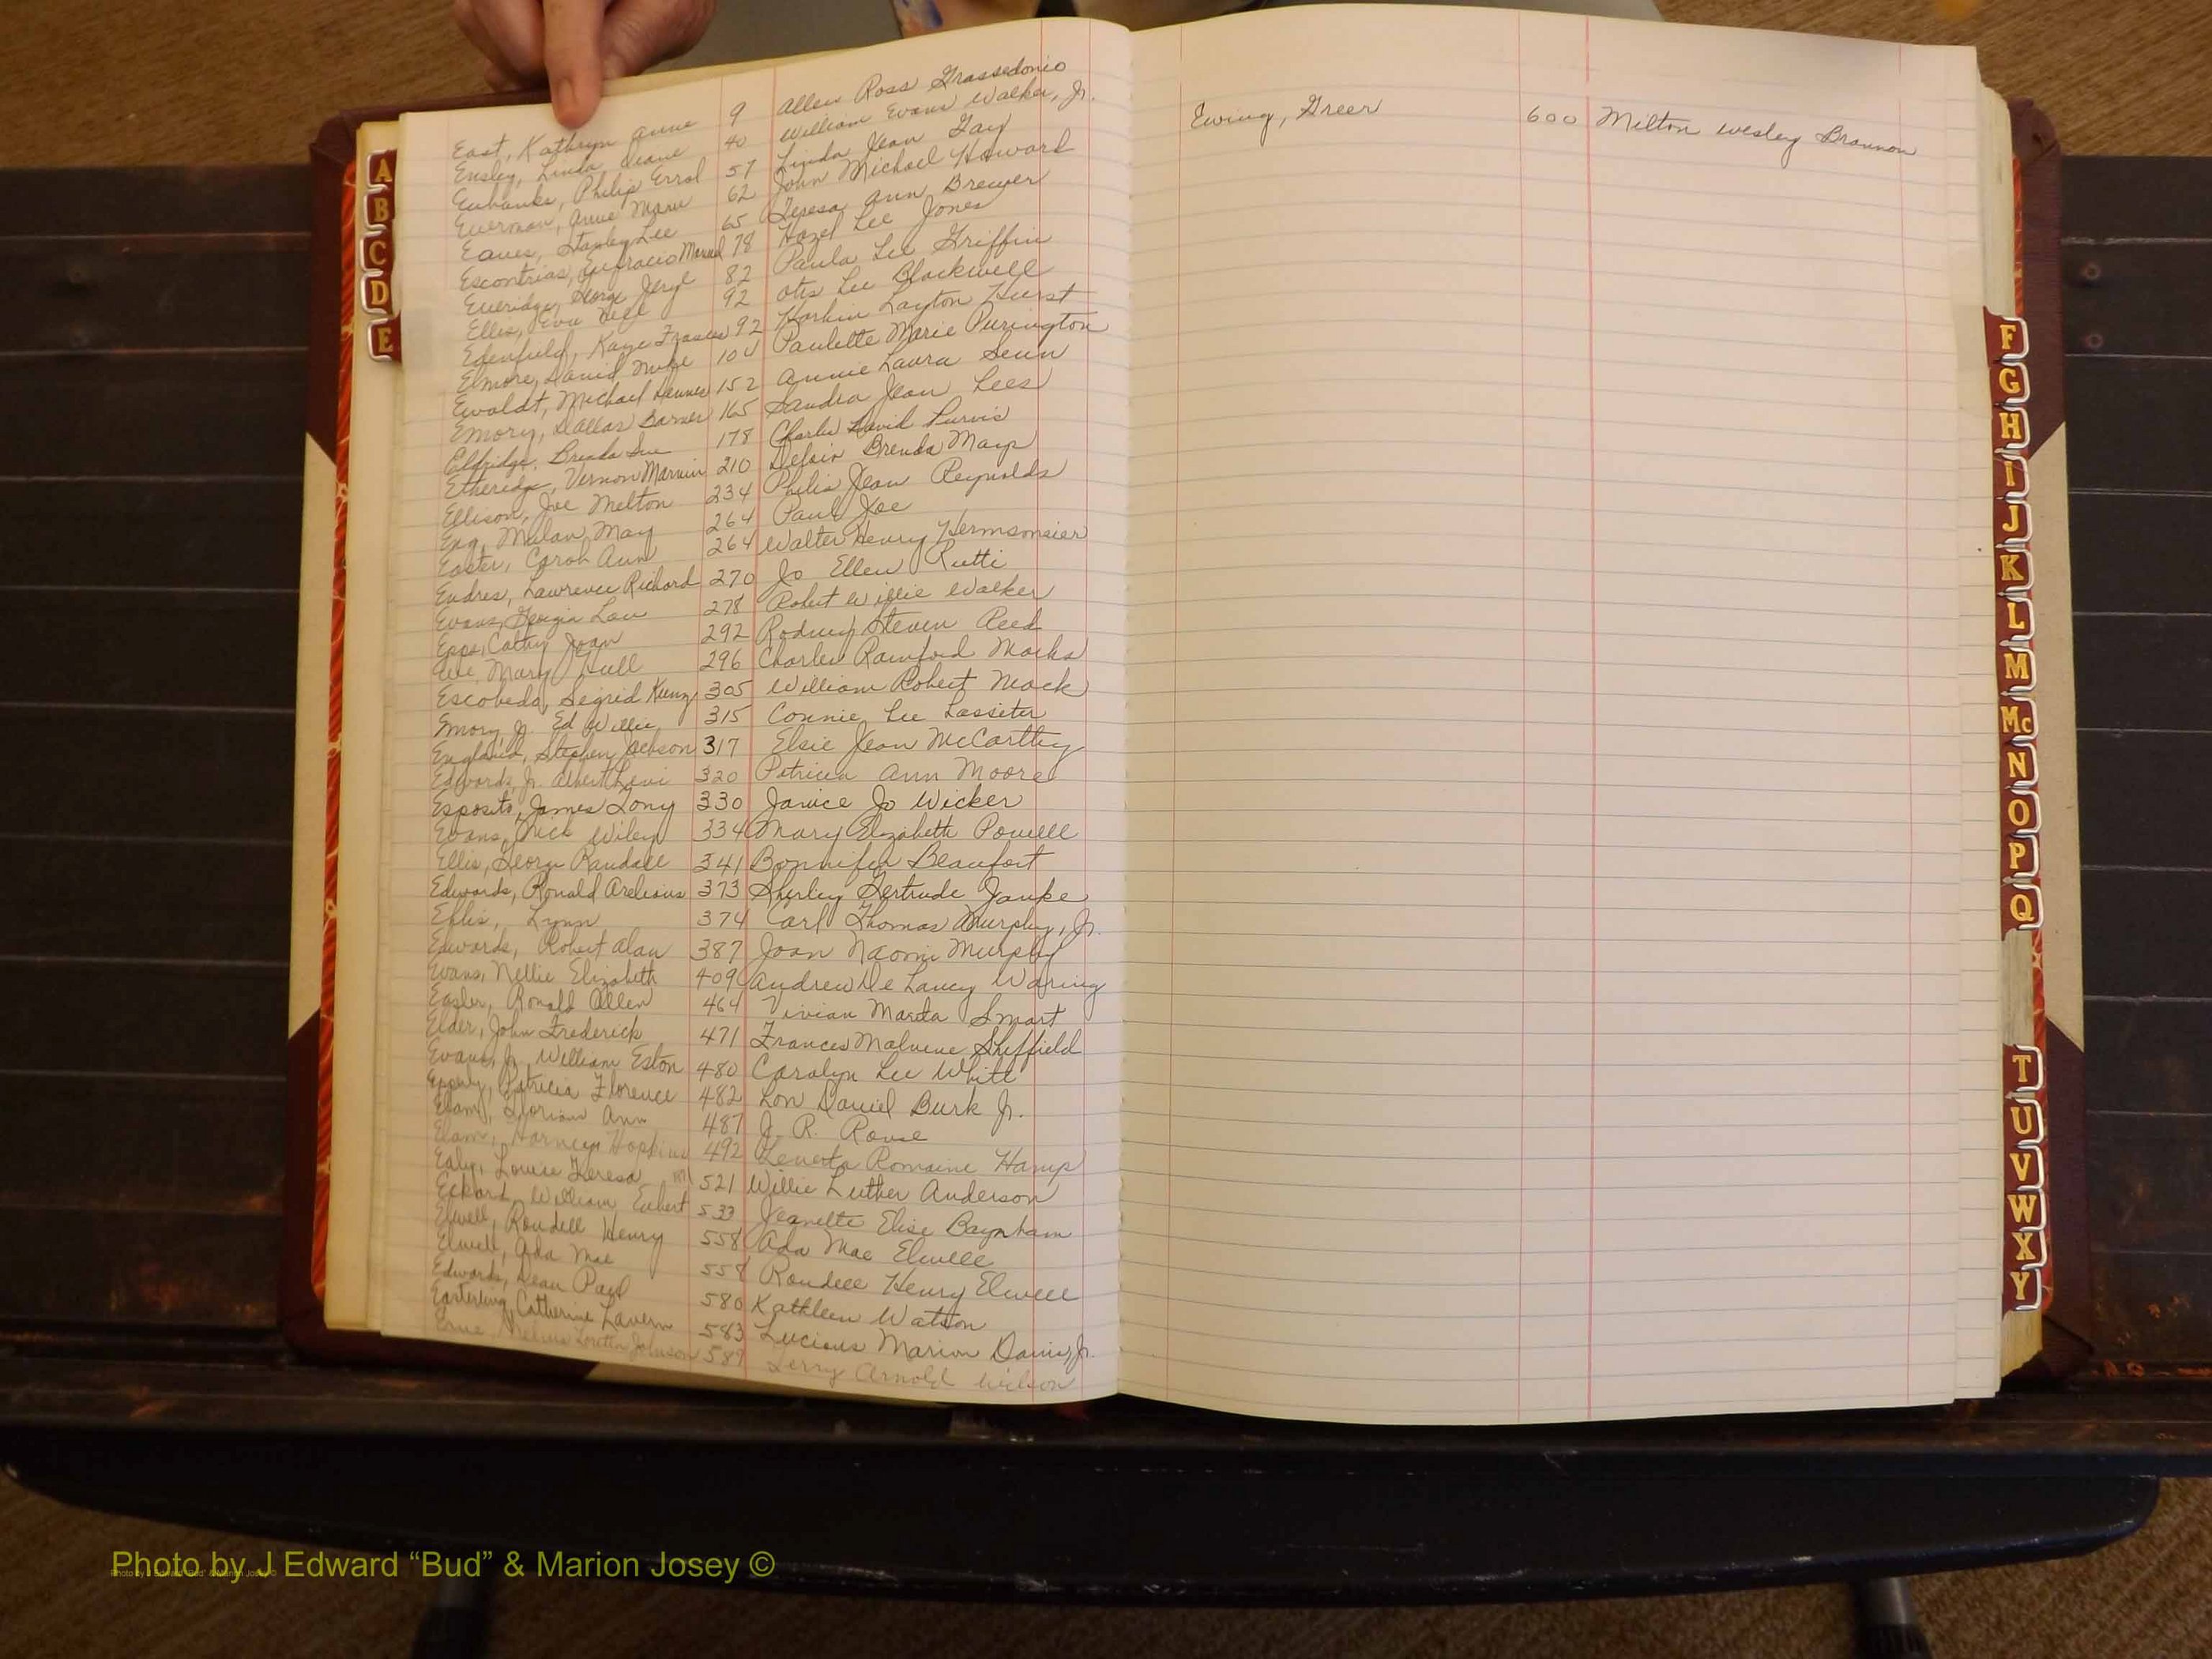 East, Kathryn Anne 9 Allen Ross Grassedonio
Ensley, Linda Diane 40 William Evans Walker, Jr.
Eubanks, Philip Errol 57 Linda Jean Gay
Everman, Anne Marie 62 John Michael Howard
Eaves, Stanley Lee 65 Teresa Ann Brewer
Escontrias, Eufracio Manuel 78 Hazel Lee Jones
Everidge, George Jeryl 82 Paula Lee Griffin
Ellis, Eva Nell 92 Otis Lee Blackwell
Edenfield, Kaye Frances 92 Layton Hurst
Elmore, David Mike 104 Paulette Marie Purington
Ewoldt, Michael Dennis 152 Annie Laura
Emory, Dallas 165 Sandra Jean Lees
Eldridge, Brenda Sue 178 Charlie David Purvis
Etheredge, Vernon Marvin 210 Brenda Mays
Ellison, Joe Melton 234 Philis Jean Reynolds
Eng, Mulan May 264 Paul Joe
Easter, Carol Ann 264 Walter Henry Hermsmeier
Endres, Lawrence Richard 270 Jo Ellen Rutti
Evans, Georgia Lou 278 Robert Willie Walker
Epps, Cathy Joan 292 Rodney Steven Reed
Mary Hull 296 Charles Rainford Marks
Escobedo, Segrid Kunz 305 William Robert Mock
Emory Jr. Ed Willie 315 Connie Lee Lassiter
England, Stephen Jackson 317 Elsie Jean McCarthy
Edwards, Jr. Albert Levi 320 Patricia Ann Moore
Esposito, James Tony 330 Janice Jo Wicker
Evans, Dick Wiley 334 Mary Elizabeth Powell
Ellis, George Randall 341 Bonnifer Beaufort
Edwards, Ronald 373 Shirley Gertrude Janke
Ellis, Lynn 374 Carl Thomas Murphy, Jr.
Edwards, Robert Alan 387 Joan Naomi Murphy
Evans, Nellie Elizabeth 409 Andrew De Lancy Waring
Easler, Ronald Allen 464 Vivian Smart
Elder, John Frederick 471 Frances Malvene Sheffield
Evans, Jr. William Eston 480 Carolyn Lee White
Epperly, Patricia Florence 482 Lon Daniel Burk Jr.
Elam, Ann 487 J. R. Rouse
Elam, Hopkins 492 Romaine Hamp
Ealy, Louise Teresa 521 Willie Luther Anderson
Eckard, William 533 Jeanette Elise Baynham
Elwell, Rondell Henry 558 Ada Mae Elwell
Elwell, Ada Mae 558 Rondell Henry Elwell
Edwards, Dean Paul 580 Kathleen Watson
Easterling, Catherine Lavern 583 Lucious Marion Davis, Jr.
Loretta Johnson 589 Arnold Wilson
Ewing, Greer 600 Milton Wesley Brannon
A
B
C
D
E
F
G
H
I
J
K
L
M
Mc
N
O
P
Q
T
U
V
W
X
Y
Photo by J Edward “Bud” & Marion Josey ©
Photo by J Edward "Bud" & Marion Josey ©